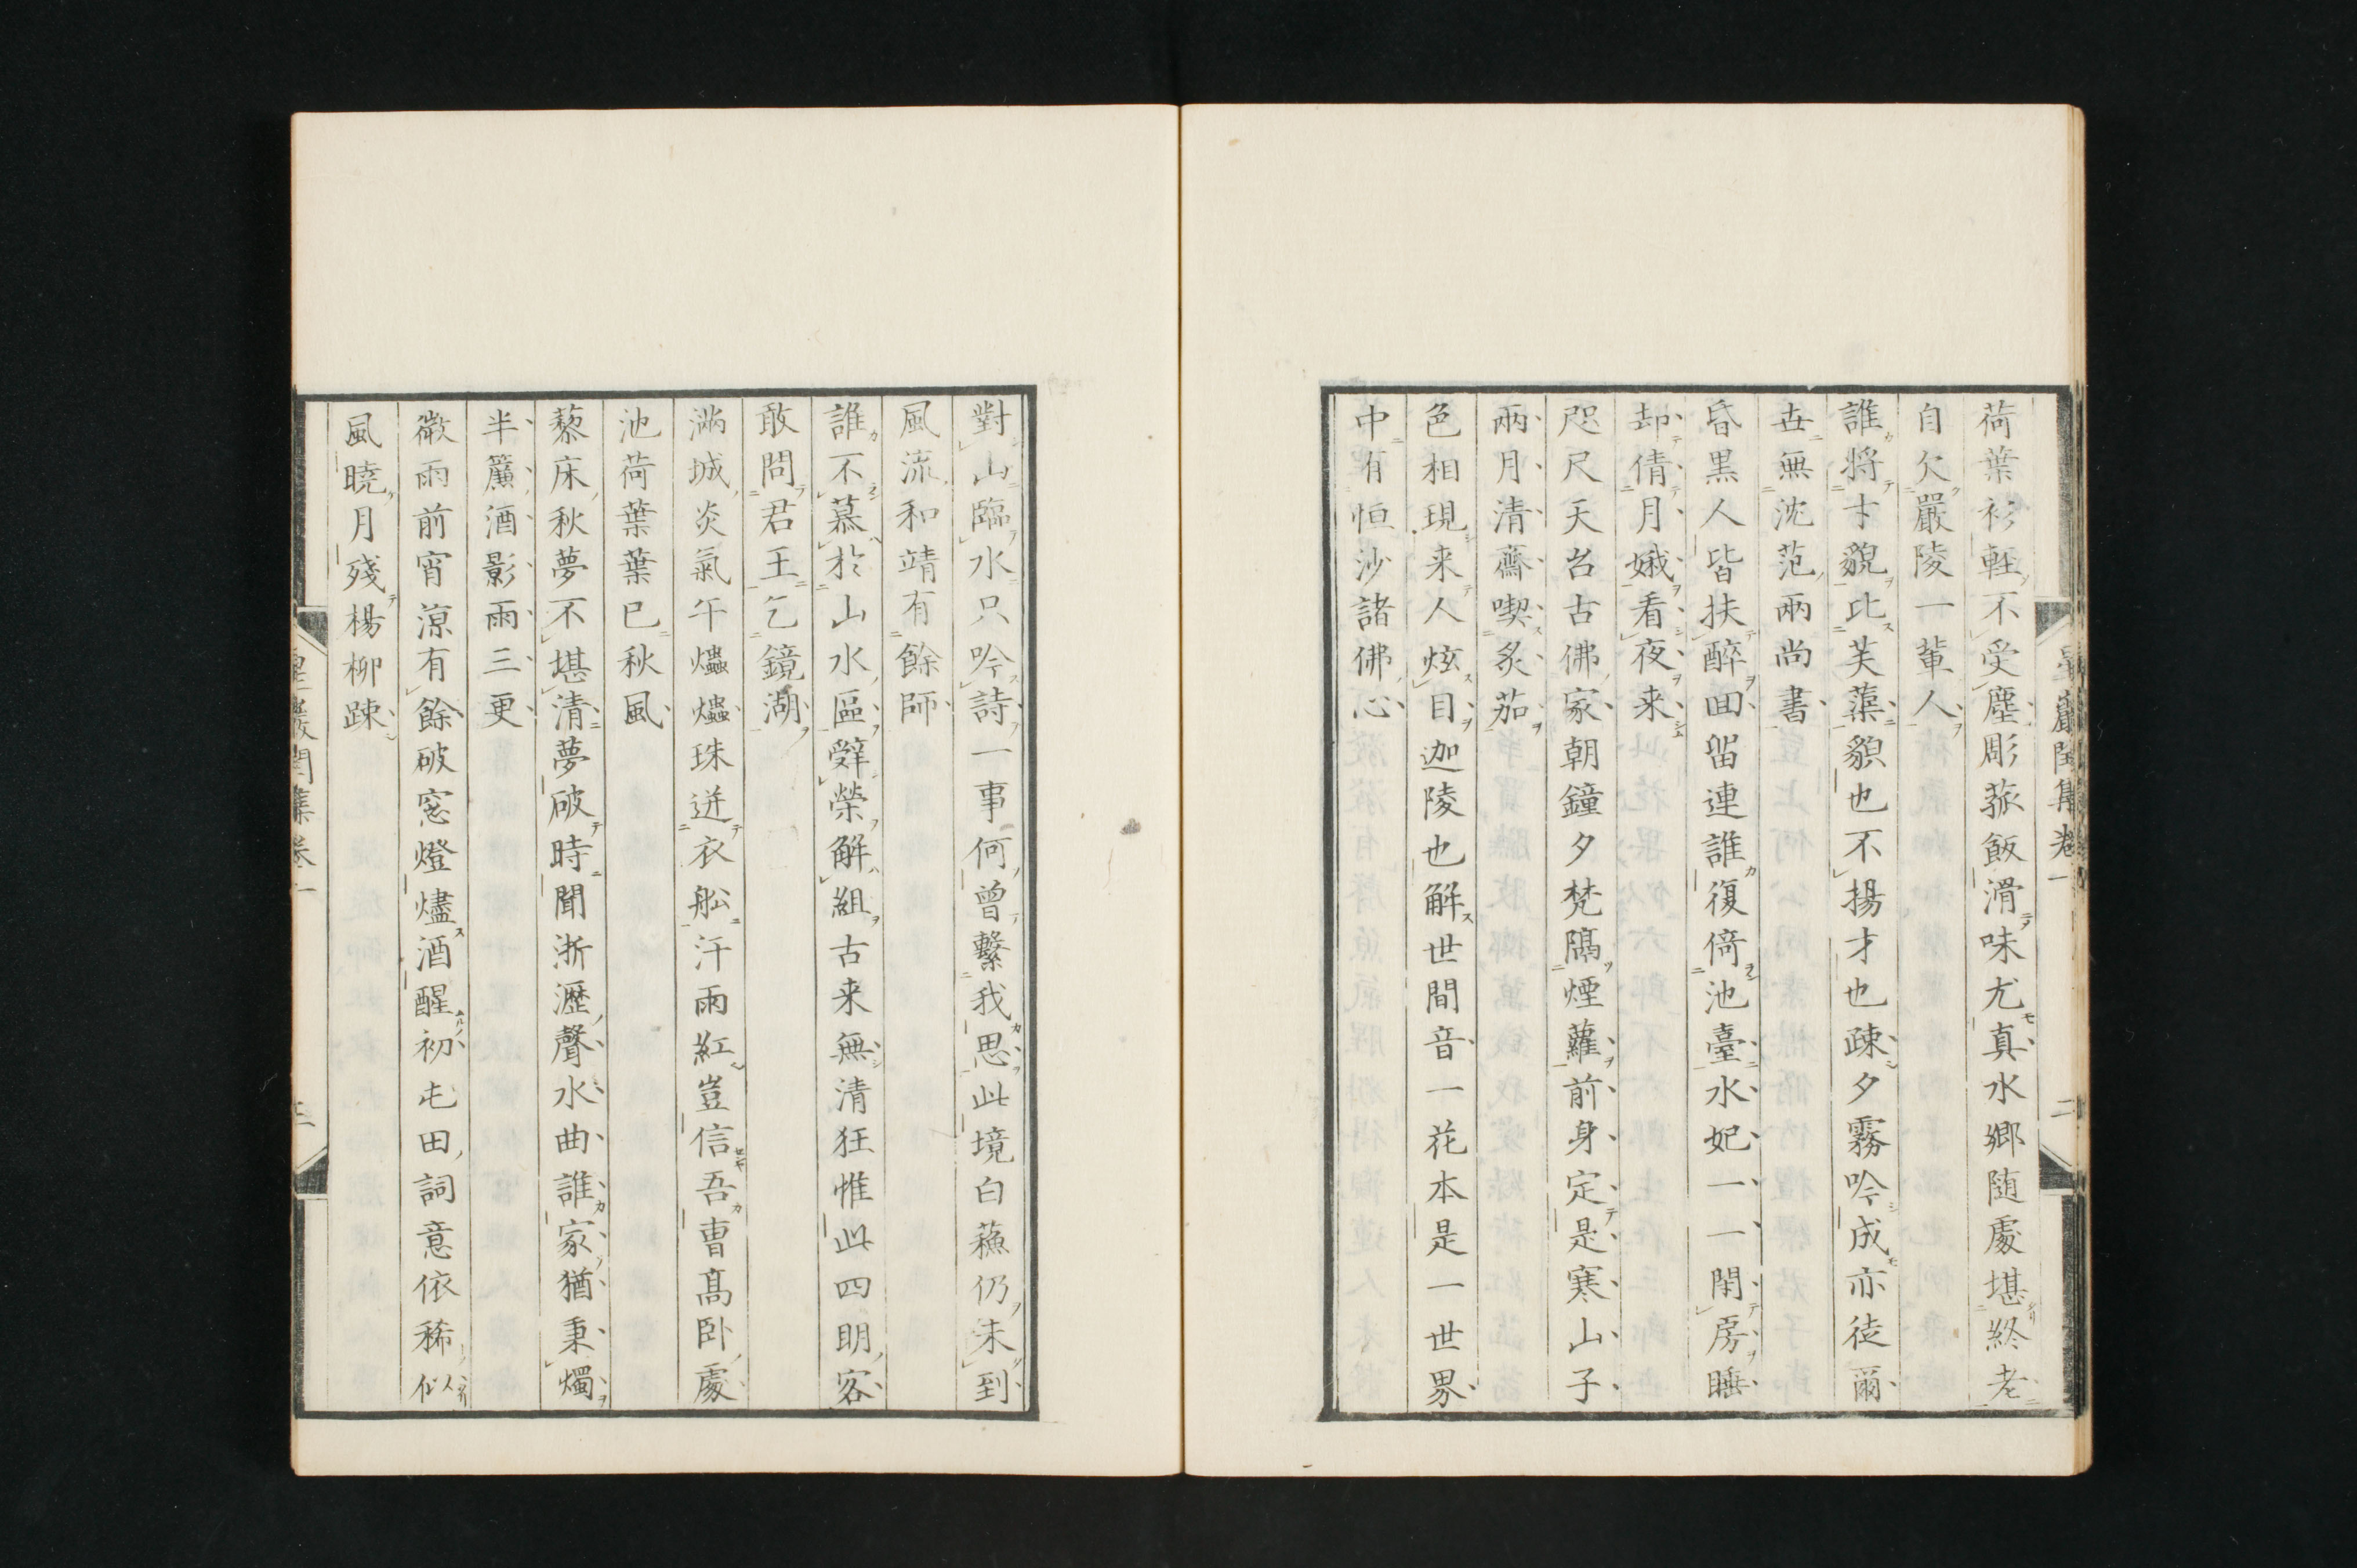 荷葉衫輕不受塵彫菰飯滑味尤真水鄉随處堪終老
自欠嚴陵一輩人
誰將寸貌比芙蕖貌也不揚才也疎夕霧吟成亦徒爾
世無沈范兩尚書
昏黒人皆扶醉回留連誰復倚池臺水妃一一閑房睡
却倩月娥看夜来
咫尺天台古佛家朝鐘夕梵隔煙蘿前身定是寒山子
兩月清齋喫炙茄
色相現来人炫目迦陵也解世間音一花本是一世界
中有恒沙諸佛心
對山臨水只吟詩一事何曾繫我思此境白蘓仍未到
風流和靖有餘師
誰不慕於山水區辭榮解組古来無清狂惟此四明客
敢問君王乞鏡湖
滿城炎氣午爞爞珠迸衣舩汗雨紅豈信吾曹髙卧處
池荷葉葉已秋風
藜床秋夢不堪清夢破時聞淅瀝聲水曲誰家猶秉燭
半簾酒影雨三更
微雨前宵涼有餘破窓燈燼酒醒初屯田詞意依稀似
風曉月殘楊柳踈
星巖閏集卷一
二